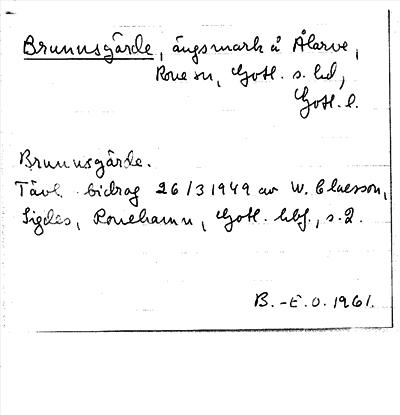 Brunnsgärde, ängsmark å Ålarve,
Rone sn, Gotl. s. hd,
Gotl. l.
Brunnsgärde.
Tävl. bidrag 26/3 1949 av W. Claesson,
Sigdes, Ronehamn, Gotl. hbf., s. 2.
B.-E.O. 1961.